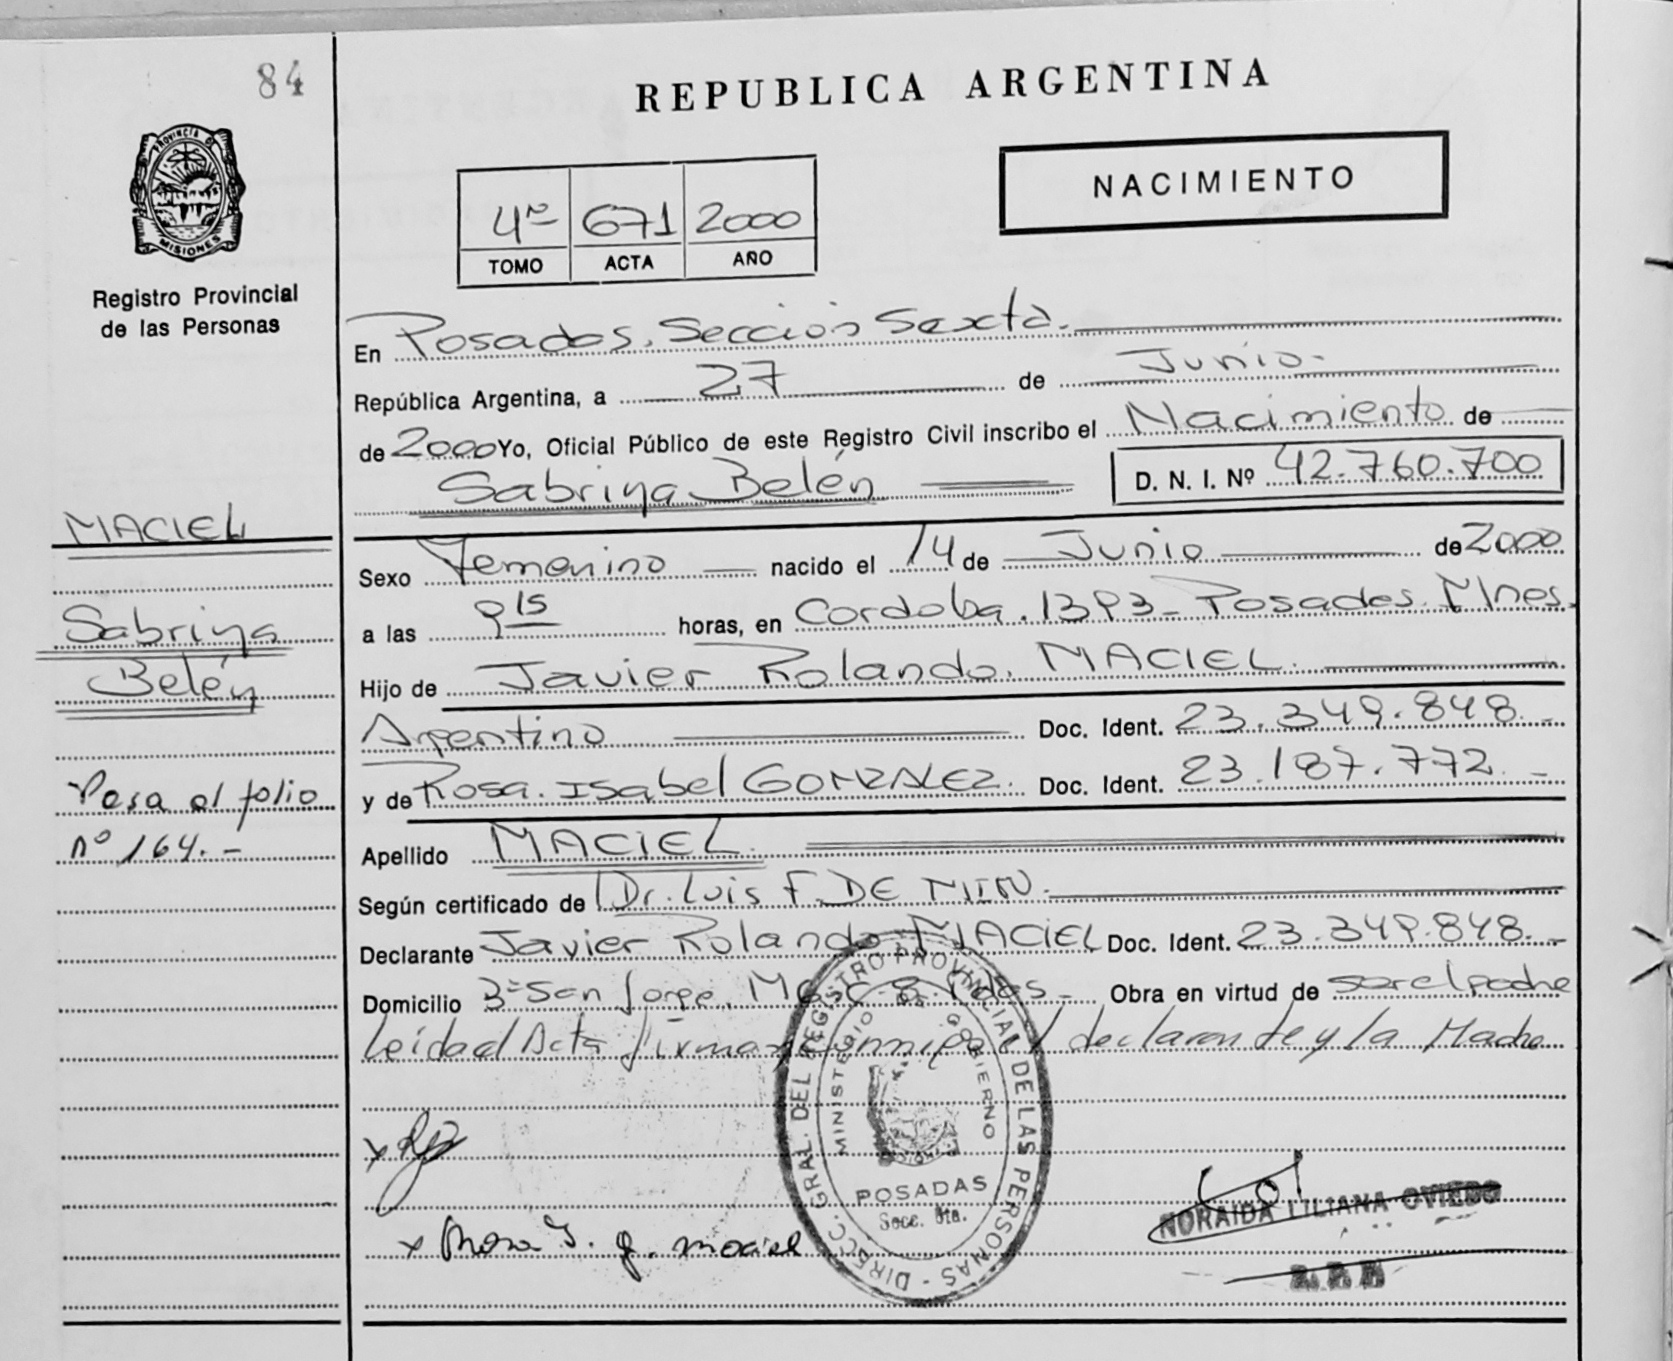 84
REPUBLICA ARGENTINA
PROVINCIA DE
MISIONES
Registro Provincial
de las Personas
4º 671 2000
TOMO ACTA AÑO
NACIMIENTO
En Posadas. Sección Sexta.
República Argentina, a 27 de Junio.
de 2000 Yo, Oficial Público de este Registro Civil inscribo el Nacimiento de
Sabrina Belén D. N. I. Nº 42.760.700
MACIEL
Sabrina
Belén
Pasa al folio
nº 164.-
Sexo Femenino nacido el 14 de Junio de 2000
a las 9 15 horas, en Cordoba. 1393 - Posadas. Mnes.
Hijo de Javier Rolando. MACIEL.
Argentino Doc. Ident. 23.349.848.-
y de Rosa. Isabel GONZALEZ. Doc. Ident. 23.187.772.-
Apellido MACIEL.
Según certificado de Dr. Luis F. DE MIN.
Declarante Javier Rolando MACIEL Doc. Ident. 23.349.848.-
Domicilio San Jorge. Obra en virtud de ser el padre
Leída el Acta firman conmigo el declarante y la Madre
DIRECC. GRAL. DEL REGISTRO PROVINCIAL DE LAS PERSONAS
MINISTERIO DE GOBIERNO
POSADAS
Secc. 6ta.
x
x Rosa I. g. maciel
NORAIDA LILIANA OVIEDO